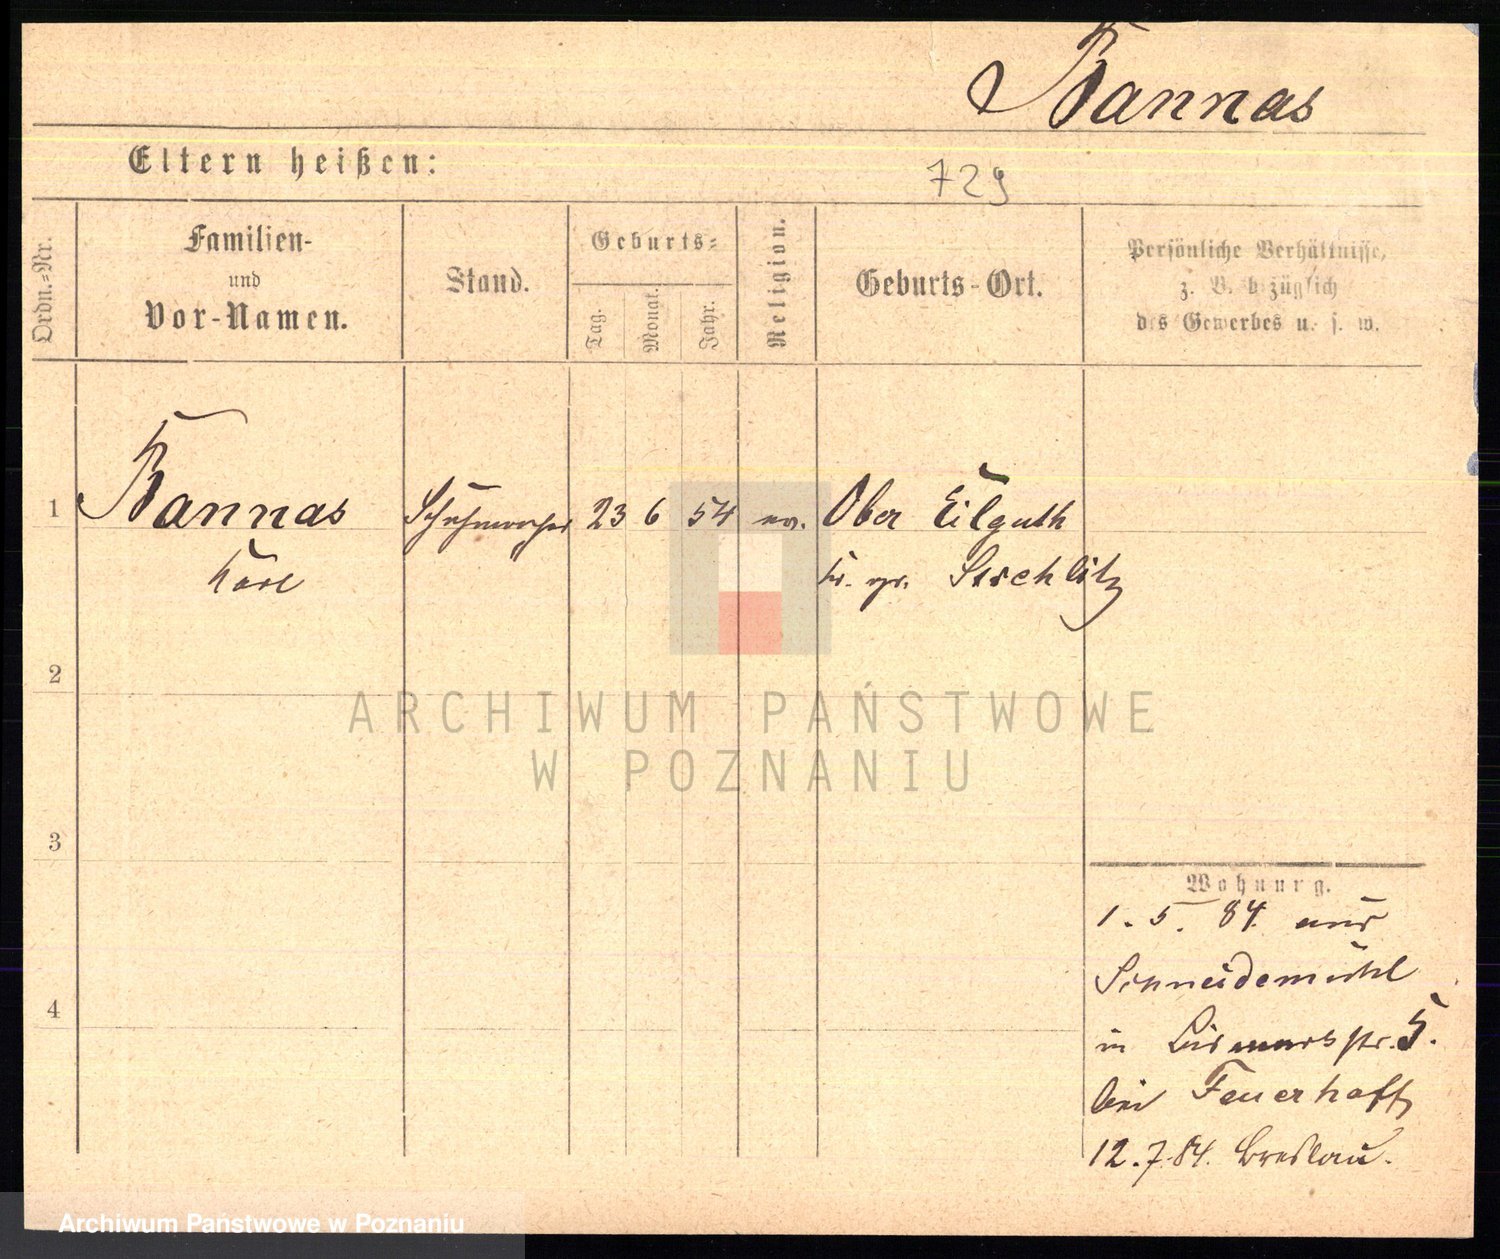 Bannas
Eltern heißen:
729
Ordn.-Nr.
Familien-
und
Vor-Namen.
Stand.
Geburts-
Tag.
Monat.
Jahr.
Religion.
Geburts-Ort.
Persönliche Verhältnisse,
z. B. bezüglich
des Gewerbes u. s. w.
1
Bannas
Karl
Schuhmacher
23
6
54
ev.
Ober Eilguth
Kr. gr. Strehlitz
2
3
4
ARCHIWUM PAŃSTWOWE
W POZNANIU
Wohnung.
1. 5. 84. aus
Schneidemühl
in Bismarkstr. 5.
bei Feuerhaft
12. 7. 84. Breslau.
Archiwum Państwowe w Poznaniu